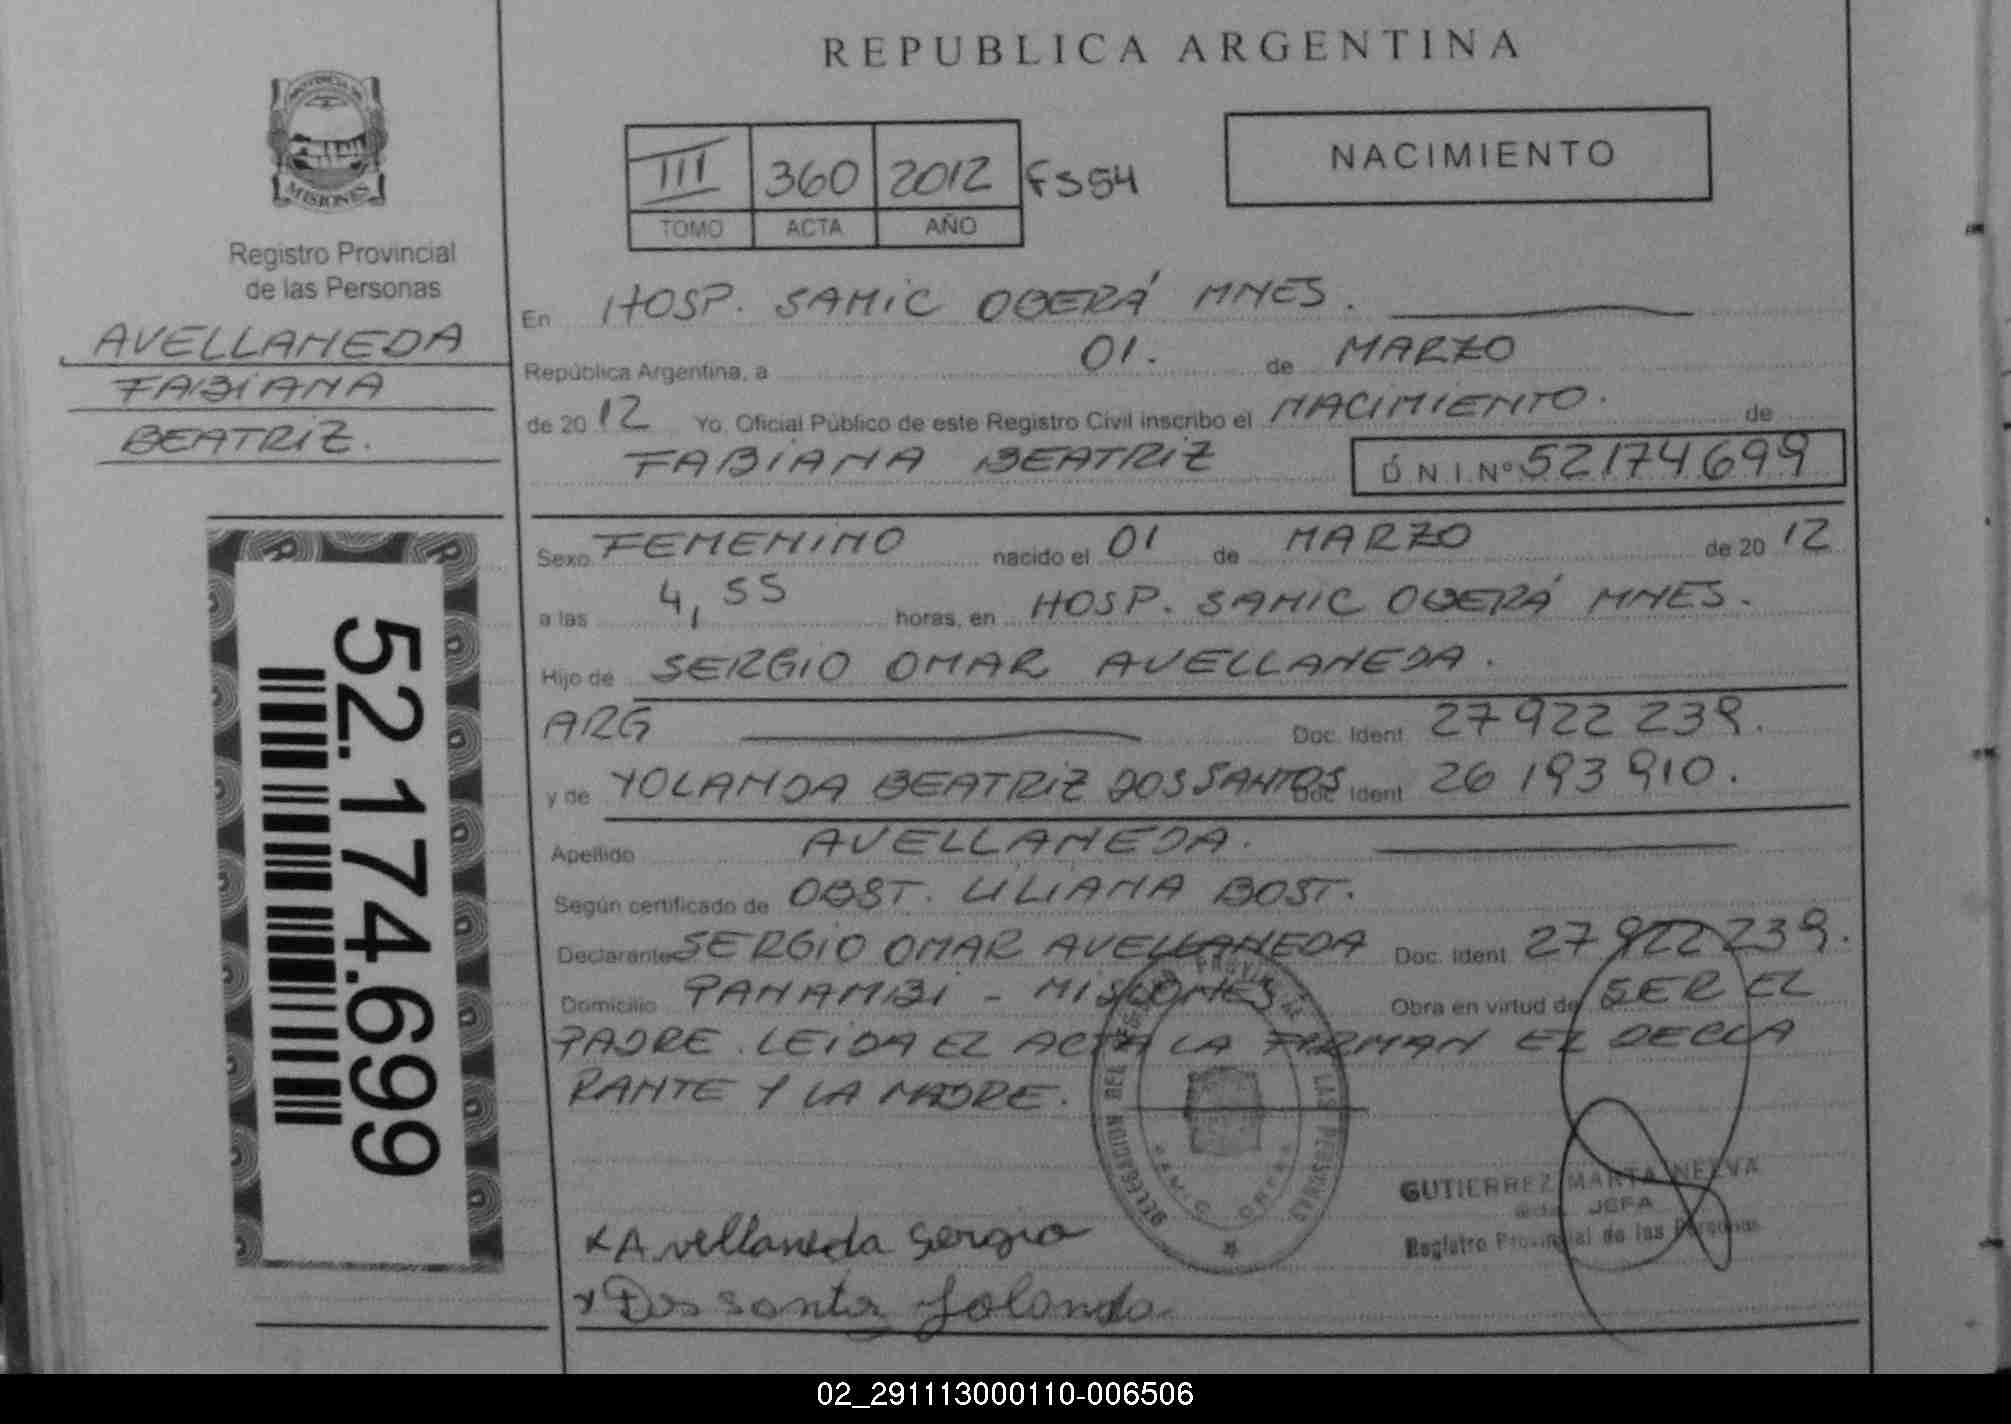 REPUBLICA ARGENTINA
PROVINCIA DE
MISIONES
Registro Provincial
de las Personas
AVELLANEDA
FABIANA
BEATRIZ.
III 360 2012 FS54
TOMO ACTA AÑO
NACIMIENTO
En HOSP. SAMIC OBERÁ MNES.
República Argentina, a 01. de MARZO
de 2012 Yo, Oficial Público de este Registro Civil inscribo el NACIMIENTO. de
FABIANA BEATRIZ D N I. Nº 52174699
Sexo FEMENINO nacido el 01 de MARZO de 2012
a las 4,55 horas, en HOSP. SAMIC OBERÁ MNES.
Hijo de SERGIO OMAR AVELLANEDA.
ARG Doc. Ident 27922 239.
y de YOLANDA BEATRIZ DOS SANTOS Doc Ident 26 193 910.
Apellido AVELLANEDA.
Según certificado de OBST. LILIANA BOST.
Declarante SERGIO OMAR AVELLANEDA Doc. Ident 27 922 239.
Domicilio PANAMBI - MISIONES Obra en virtud de SER EL
PADRE. LEIDA EL ACTA LA FIRMAN EL DECLA
RANTE Y LA MADRE.
52.174.699
DELEGACION DEL REGISTRO PROVINCIAL DE LAS PERSONAS
GUTIERREZ MARTA NELVA
JEFA
Registro Provincial de las Personas
x Avellaneda Sergio
x Dos santos Yolanda
02_291113000110-006506